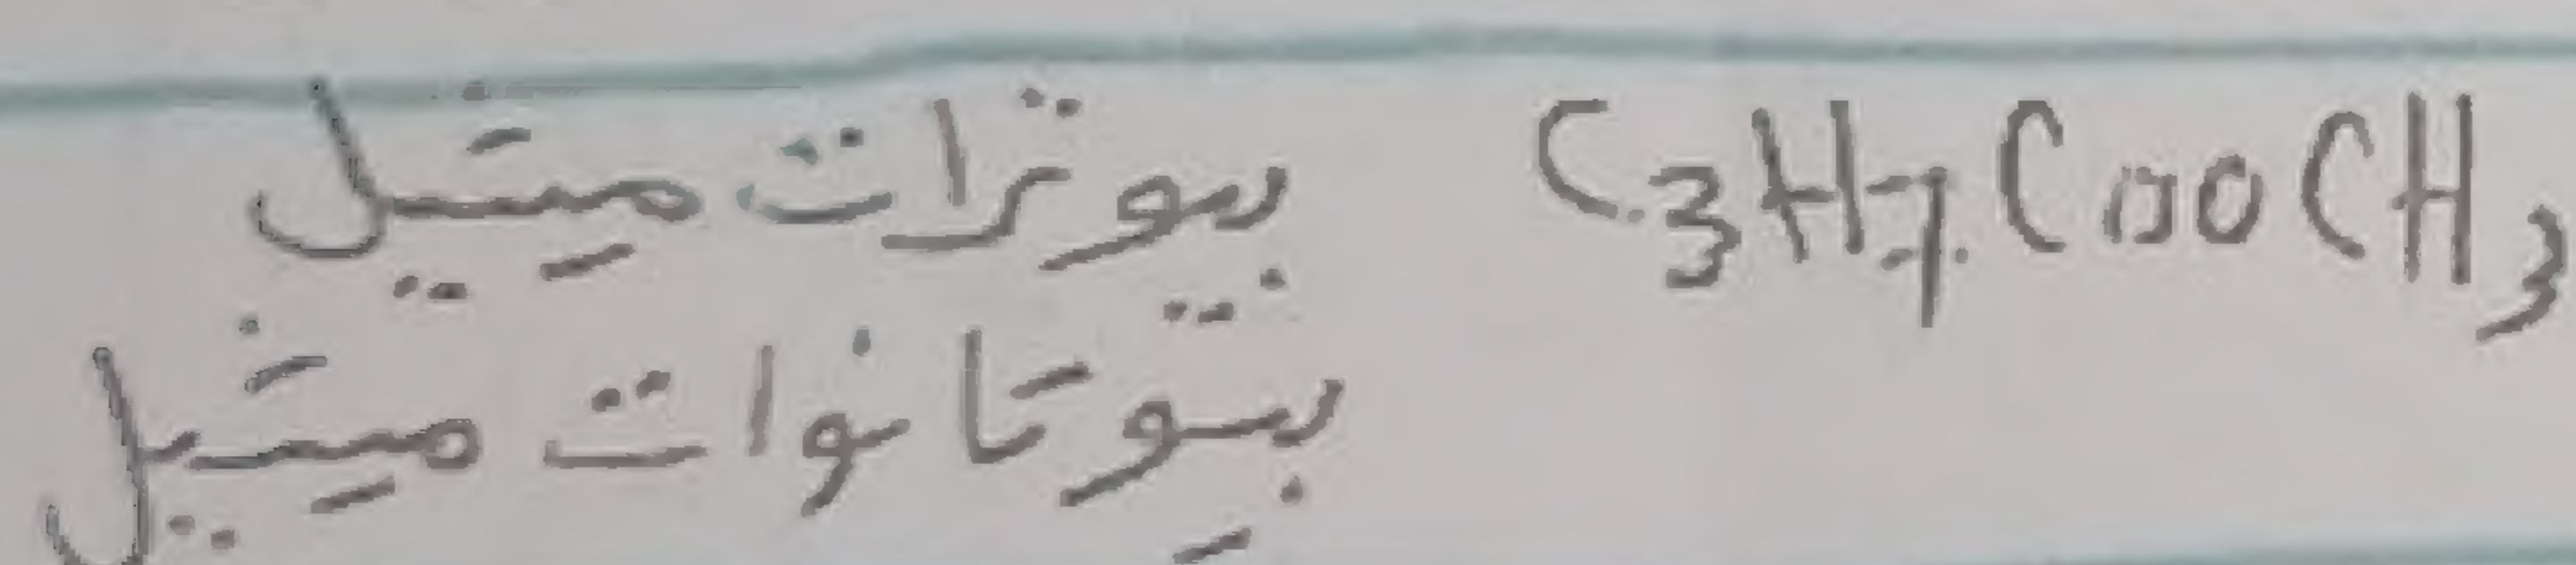 C3H7COOCH3 بيوترات ميثيل
بيوتانوات ميثيل